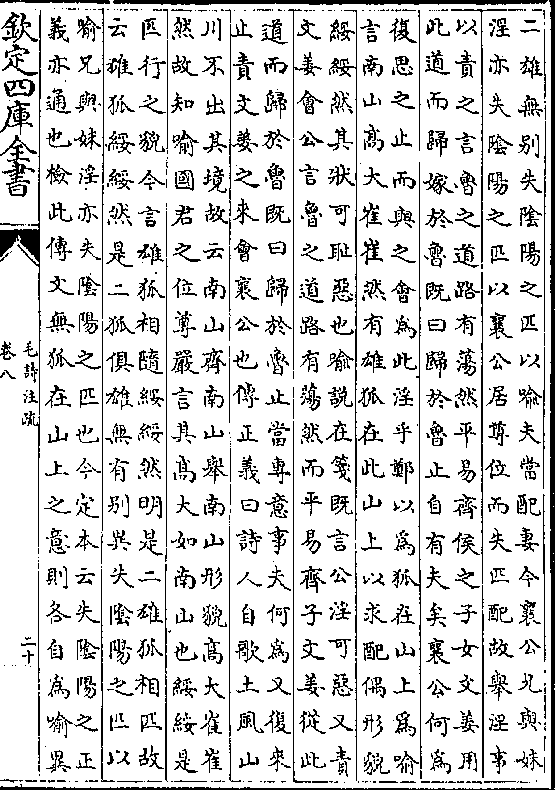 二雄無别失陰陽之匹以喻夫當配妻今襄公兄與妹
淫亦失陰陽之匹以襄公居尊位而失匹配故舉淫事
以責之言魯之道路有蕩然平易齊侯之子女文姜用
此道而歸嫁於魯既曰歸於魯止自有夫矣襄公何為
復思之止而與之會為此淫乎鄭以為狐在山上為喻
言南山高大崔崔然有雄狐在此山上以求配偶形貌
綏綏然其狀可恥惡也喻説在箋既言公淫可惡又責
文姜會公言魯之道路有蕩然而平易齊子文姜從此
道而歸於魯既曰歸於魯止當專意事夫何為又復來
止責文姜之來會襄公也傳正義曰詩人自歌土風山
川不出其境故云南山齊南山舉南山形貌高大崔崔
然故知喻國君之位尊嚴言其高大如南山也綏綏是
匹行之貌今言雄狐相隨綏綏然明是二雄狐相匹故
云雄狐綏綏然是二狐俱雄無有别異失陰陽之匹以
喻兄與妹淫亦失陰陽之匹也今定本云失陰陽之正
義亦通也檢此傳文無狐在山上之意則各自為喻異
欽定四庫全書
毛詩注疏
卷八
二十